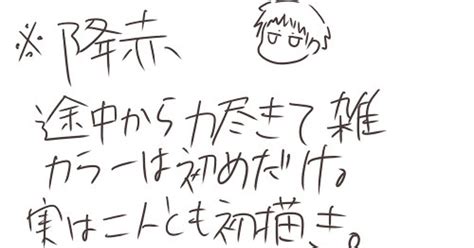 ※降赤
途中から力尽きて雑
カラーは初めだけ。
実は二人とも初描き。